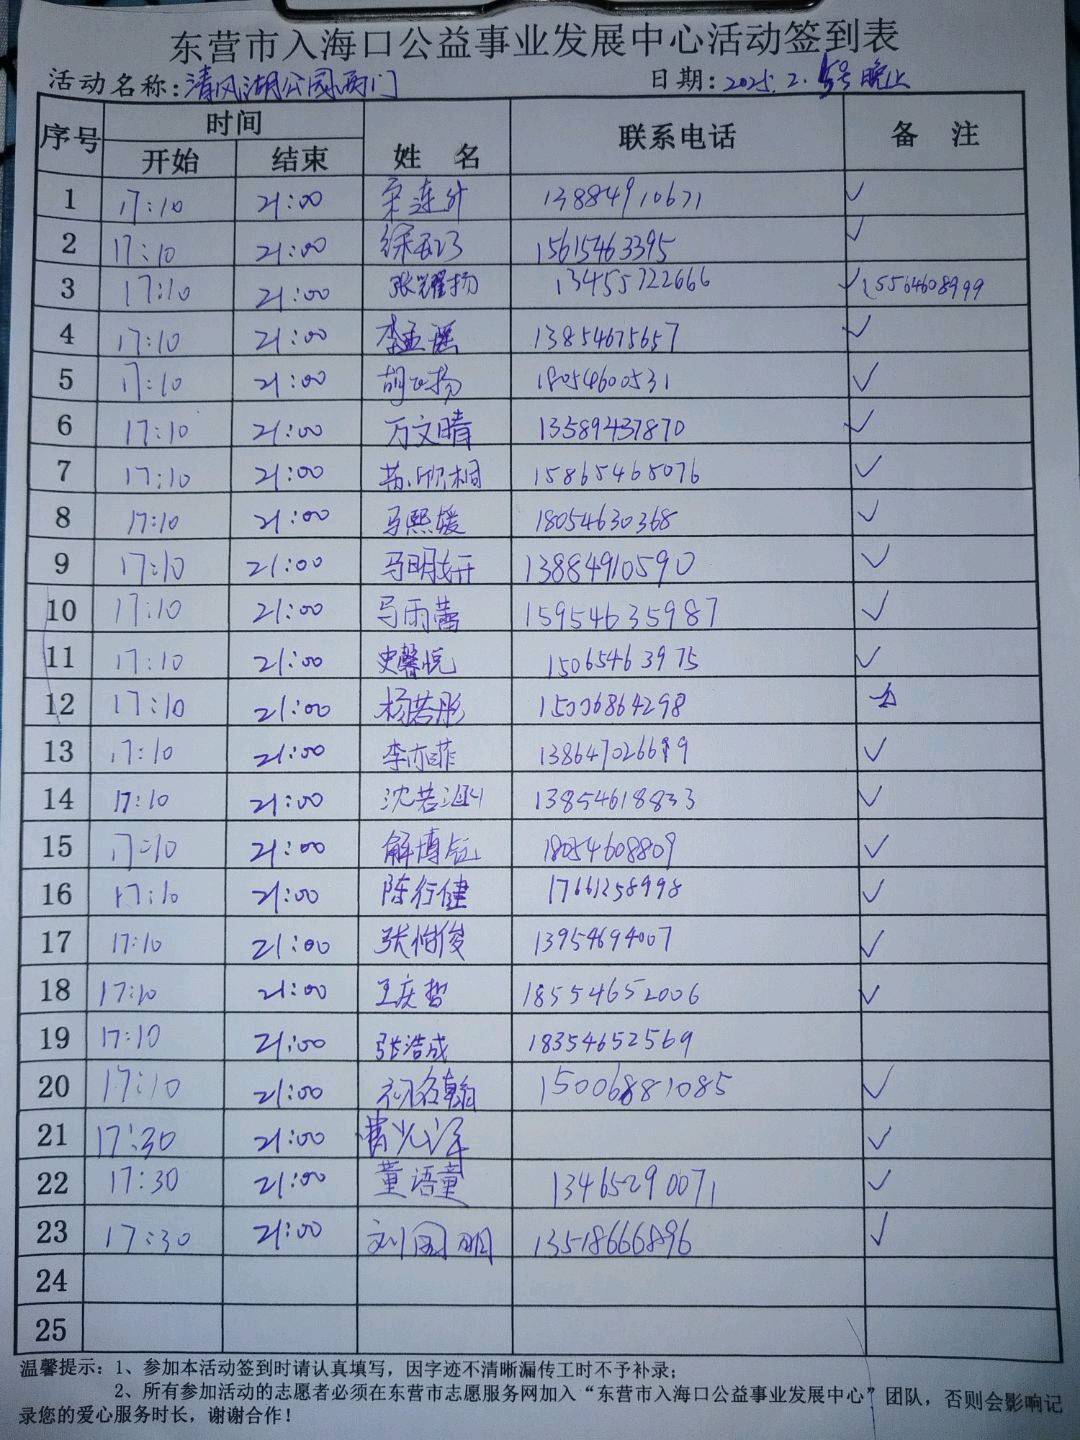 东营市入海口公益事业发展中心活动签到表
活动名称:清风湖公园西门 日期:2025.2.5号晚上
序号 时间 姓名 联系电话 备注
开始 结束
1 17:10 21:00 宋连升 13884910671 ✓
2 17:10 21:00 15615463395 ✓
3 17:10 21:00 张耀扬 13455722666 ✓15564608999
4 17:10 21:00 李孟瑶 13854675657 ✓
5 17:10 21:00 18054600531 ✓
6 17:10 21:00 万文晴 13589437870 ✓
7 17:10 21:00 苗欣桐 15865465076 ✓
8 17:10 21:00 马熙媛 18054630368 ✓
9 17:10 21:00 马明妍 13884910590 ✓
10 17:10 21:00 马雨蕾 15954635987 ✓
11 17:10 21:00 史馨悦 15065463975 ✓
12 17:10 21:00 杨若彤 15006864298
13 17:10 21:00 李亦菲 ✓
14 17:10 21:00 沈若汕 13854618833 ✓
15 17:10 21:00 解博 18054608809 ✓
16 17:10 21:00 陈行健 17661258998 ✓
17 17:10 21:00 张怡俊 13954694007 ✓
18 17:10 21:00 王庆哲 18554652006 ✓
19 17:10 21:00 张浩成 18354652569
20 17:10 21:00 初铭翰 15006881085 ✓
21 17:30 21:00 ✓
22 17:30 21:00 董语童 13465290071 ✓
23 17:30 21:00 刘国明 13518666896 ✓
24
25
温馨提示:1、参加本活动签到时请认真填写,因字迹不清晰漏传工时不予补录;
2、所有参加活动的志愿者必须在东营市志愿服务网加入“东营市入海口公益事业发展中心”团队,否则会影响记
录您的爱心服务时长,谢谢合作!